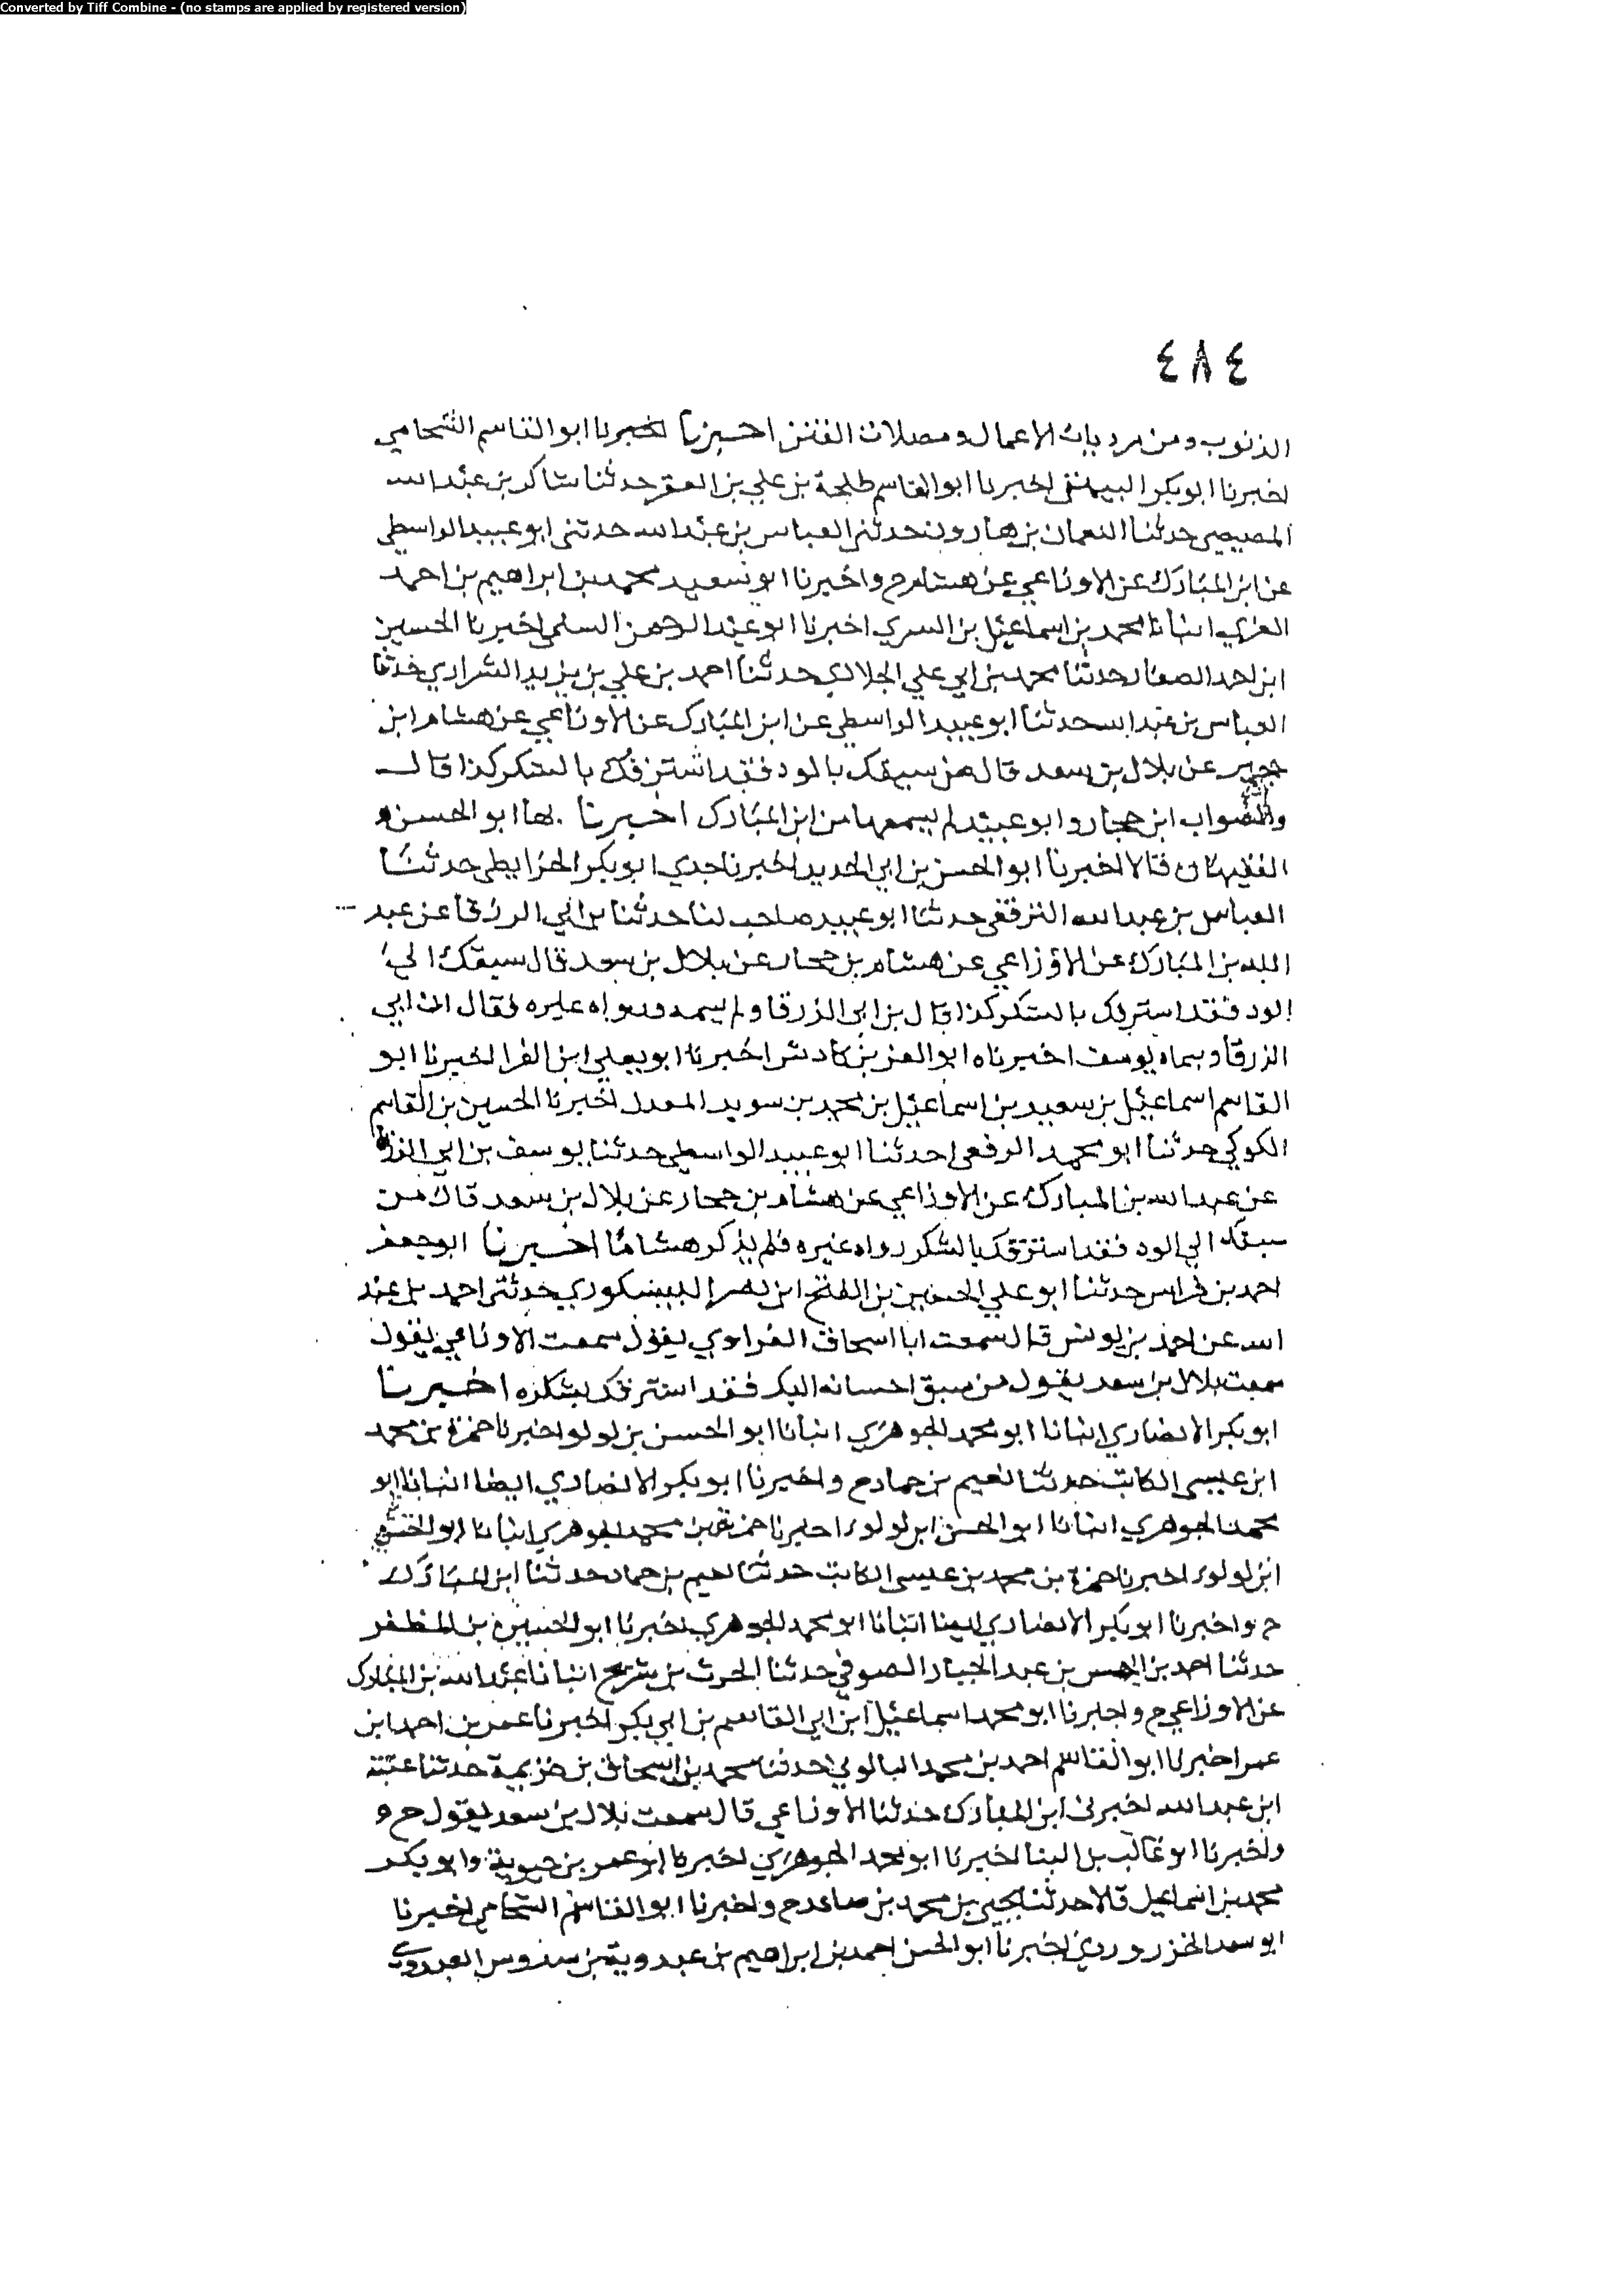 Converted by Tiff Combine - (no stamps are applied by registered version)
٤٨٤
الذنوب ومن مرديات الاعمال ومضلات الفتن اخبرنا اخبرنا ابو القاسم الشحامي
اخبرنا ابو بكر البيهقي اخبرنا ابو القاسم طلحة بن علي بن الصقر حدثنا شاكر بن عبد الله
المصيصي حدثنا النعمان بن هارون حدثني العباس بن عبد الله حدثني ابو عبيد الواسطي
عن ابن المبارك عن الاوزاعي عن هشام ح واخبرنا ابو سعيد محمد بن ابراهيم بن احمد
الغزي انبأنا محمد بن اسماعيل بن السري اخبرنا ابو عبد الرحمن السلمي اخبرنا الحسين
ابن احمد الصفار حدثنا محمد بن ابي علي الجلادي حدثنا احمد بن علي بن يزيد الشراري حدثنا
العباس بن عبد الله حدثنا ابو عبيد الواسطي عن ابن المبارك عن الاوزاعي عن هشام ابن
عن بلال بن سعد قال من سبقك بالود فقد استرقك بالشكر كذا قال
والصواب ابن حجار وابو عبيد لم يسمعها من ابن المبارك اخبرنا بها ابو الحسن
الفقيهان قالا اخبرنا ابو الحسن بن ابي الحديد اخبرنا جدي ابو بكر الخرايطي حدثنا
العباس بن عبد الله الترقفي حدثنا ابو عبيد صاحب لنا حدثنا بن ابي الزرقا عن عبد
الله بن المبارك عن الاوزاعي عن هشام بن حجار عن بلال بن سعد قال سبقك الي
الود فقد استرقك بالشكر كذا قال بن ابي الزرقا ولم يسمه ورواه غيره فقال ابن ابي
الزرقا وسماه يوسف اخبرناه ابو العز بن كادش اخبرنا ابو يعلي ابن الفرا اخبرنا ابو
القاسم اسماعيل بن سعيد بن اسماعيل بن محمد بن سويد المعدل اخبرنا الحسين بن القاسم
الكوكبي حدثنا ابو محمد حدثنا ابو عبيد الواسطي حدثنا يوسف بن ابي الزرقا
عن عبد الله بن المبارك عن الاوزاعي عن هشام بن حجار عن بلال بن سعد قال من
سبقك الي الود فقد استرقك بالشكر رواه غيره فلم يذكر هشاما اخبرنا ابو جعفر
احمد بن فراس حدثنا ابو علي الحسين بن الفتح ابن نصر حدثني احمد بن عبد
الله عن احمد بن يونس قال سمعت ابا اسحاق الفراوي يقول سمعت الاوزاعي يقول
سمعت بلال بن سعد يقول من سبق احسانه اليك فقد استرقك بشكره اخبرنا
ابو بكر الانصاري انبانا ابو محمد الجوهري انبانا ابو الحسن بن لولو اخبرنا حمزة بن محمد
ابن عيسى الكاتب حدثنا نعيم بن حماد ح واخبرنا ابو بكر الانصاري ايضا انبانا ابو
محمد الجوهري انبانا ابو الحسن ابن لولوء اخبرنا حمزة بن محمد الجوهري انبانا ابو الحسن
ابن لولوء اخبرنا حمزة بن محمد بن عيسى الكاتب حدثنا نعيم بن حماد حدثنا ابن المبارك
ح واخبرنا ابو بكر الانصاري ايضا انبانا ابو محمد الجوهري اخبرنا ابو الحسين بن المظفر
حدثنا احمد بن الحسن بن عبد الجبار الصوفي حدثنا الحرث بن شريح انبانا عبد الله بن المبارك
عن الاوزاعي ح واخبرنا ابو محمد اسماعيل ابن ابي القاسم بن ابي بكر اخبرنا عمر بن احمد ابن
عمر اخبرنا ابو القاسم احمد بن محمد البالوي حدثنا محمد بن اسحاق بن خزيمة حدثنا عتبة
ابن عبد الله اخبرني ابن المبارك حدثنا الاوزاعي قال سمعت بلال بن سعد يقول ح و
واخبرنا ابو غالب بن البنا اخبرنا ابو محمد الجوهري اخبرنا ابو عمر بن حيوية وابو بكر
محمد بن اسماعيل قالا حدثنا يحيى بن محمد بن صاعد ح واخبرنا ابو القاسم الشحامي اخبرنا
ابو سعد الخزرودي اخبرنا ابو الحسن احمد بن ابراهيم بن عبدوية بن سدوس العبدوي